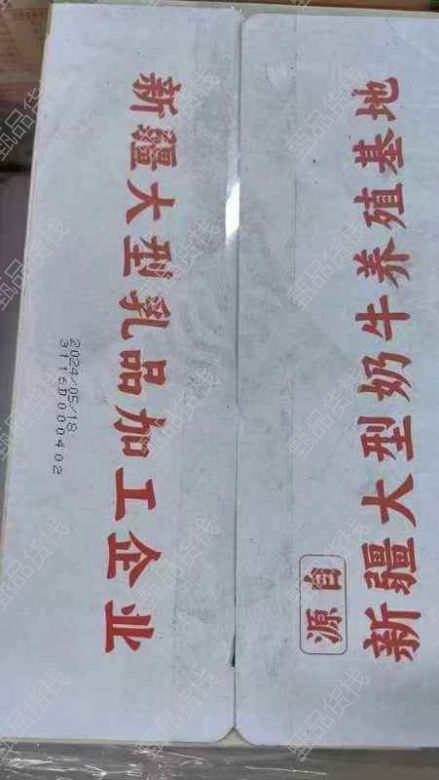 源自
新疆大型奶牛养殖基地
新疆大型乳品加工企业
2024/05/18
3115D000402
甄品货栈